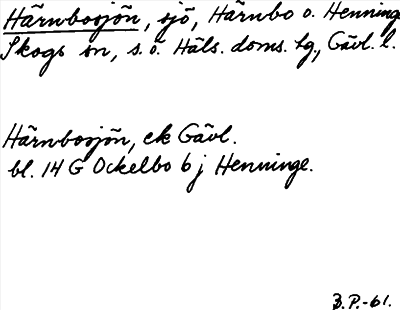 Härnbosjön, sjö, Härnbo o. Henninge
Skogs sn, s. ö. Häls. doms. lg, Gävl. l.
Härnbosjön, ek Gävl.
bl. 14 G Ockelbo 6 j Henninge.
B.P.-61.